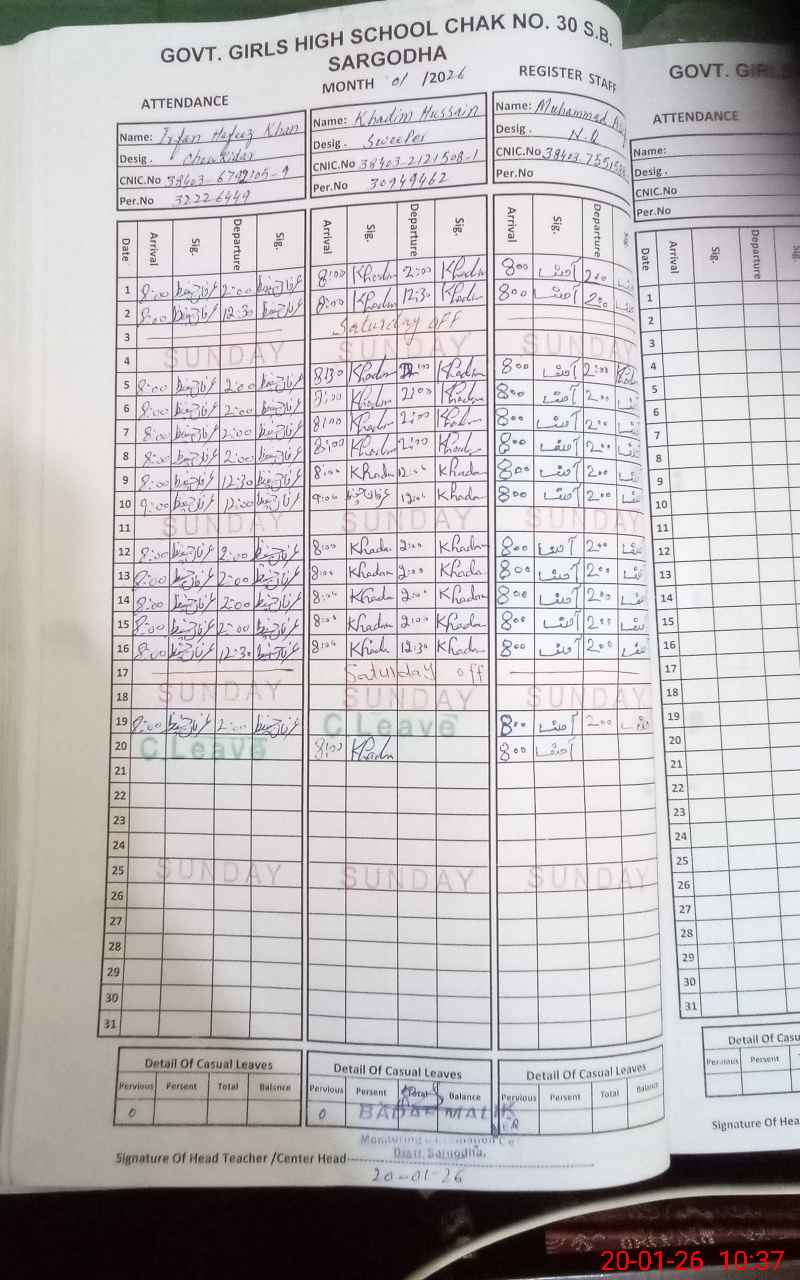 GOVT. GIRLS HIGH SCHOOL CHAK NO. 30 S.B.
SARGODHA
ATTENDANCE MONTH 01 /2026 REGISTER STAFF
Name: Irfan Hafeez Khan
Desig . Chowkidar
CNIC.No 38403-6799105-9
Per.No 32226449
Name: Khadim Hussain
Desig . Sweeper
CNIC.No 38403-2121508-1
Per.No 30949462
Name: Muhammad
Desig. N.Q
CNIC.No 38403-7551
Per.No
Date Arrival Sig. Departure Sig. Arrival Sig. Departure Sig. Arrival Sig. Departure Sig.
1 8:00 2:00 8:00 Khadim 2:00 Khadim 8:00 آصف 2:00
2 8:00 12:30 8:00 Khadim 12:30 Khadim 8:00 آصف 2:00
3 Saturday off
4 SUNDAY SUNDAY SUNDAY
5 8:00 2:00 8:30 Khadim Khadim 8:00 آصف 2:00
6 8:00 2:00 8:00 Khadim 2:00 Khadim 8:00 آصف 2:00
7 8:00 2:00 8:00 Khadim 2:00 Khadim 8:00 آصف 2:00
8 8:00 2:00 8:00 Khadim 2:00 Khadim 8:00 آصف 2:00
9 8:00 12:30 8:00 Khadim 12:00 Khadim 8:00 آصف 2:00
10 9:00 12:00 9:00 12:00 Khadim 8:00 آصف 2:00
11 SUNDAY SUNDAY SUNDAY
12 8:00 2:00 8:00 Khadim 2:00 Khadim 8:00 آصف 2:00
13 8:00 2:00 8:00 Khadim 2:00 Khadim 8:00 آصف 2:00
14 8:00 2:00 8:00 Khadim 2:00 Khadim 8:00 آصف 2:00
15 8:00 2:00 8:00 Khadim 2:00 Khadim 8:00 آصف 2:00
16 8:00 12:30 8:00 Khadim 12:30 Khadim 8:00 آصف 2:00
17 Saturday off
18 SUNDAY SUNDAY SUNDAY
19 8:00 2:00 C.Leave 8:00 آصف 2:00
20 C.Leave 8:00 Khadim 8:00 آصف
21
22
23
24
25 SUNDAY SUNDAY SUNDAY
26
27
28
29
30
31
Detail Of Casual Leaves Detail Of Casual Leaves Detail Of Casual Leaves
Pervious Persent Total Balsnce Pervious Persent Total Balance Pervious Persent Total Balance
0 0
BABAR MALIK
Distt. Sargodha.
Signature Of Head Teacher /Center Head
20-01-26
GOVT. GIRLS
ATTENDANCE
Name:
Desig .
CNIC.No
Per.No
Date Arrival Sig. Departure Sig.
1
2
3
4
5
6
7
8
9
10
11
12
13
14
15
16
17
18
19
20
21
22
23
24
25
26
27
28
29
30
31
Detail Of Casual
Pervious Persent
Signature Of Hea
20-01-26 10:37